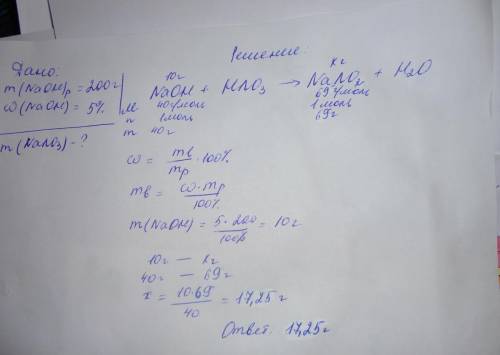 Дано:
m(NaOH)р = 200г
ω(NaOH) = 5%
m(NaNO3) - ?
Решение:
10г xг
NaOH + HNO3 → NaNO2 + H2O
M 40г/моль 69г/моль
n 1моль 1моль
m 40г 69г
ω = mв/mр · 100%
mв = ω · mр/100%
m(NaOH) = 5 · 200/100% = 10г
10г — xг
40г — 69г
x = 10·69/40 = 17,25г
Ответ: 17,25г